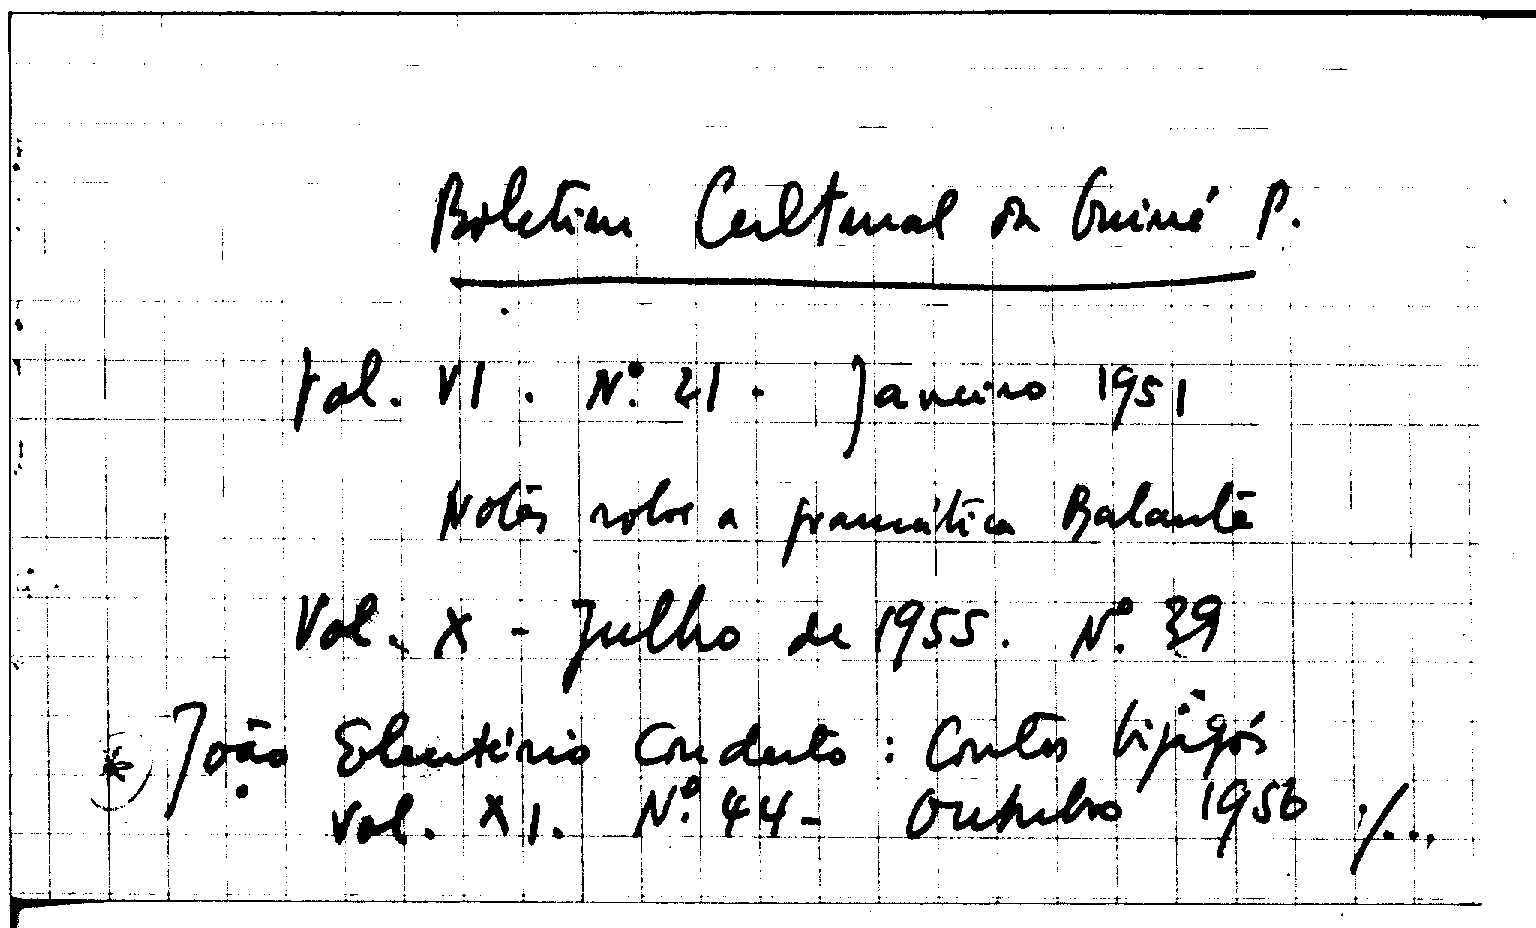 Boletim Cultural da Guiné P.
Vol. VI. Nº. 21 - Janeiro 1951
Notas sobre a gramática Balanta
Vol. X - Julho de 1955. Nº. 39
* João Eleutério Conduto: Contos bijagós
Vol. XI. Nº. 44 - Outubro 1956 ./...